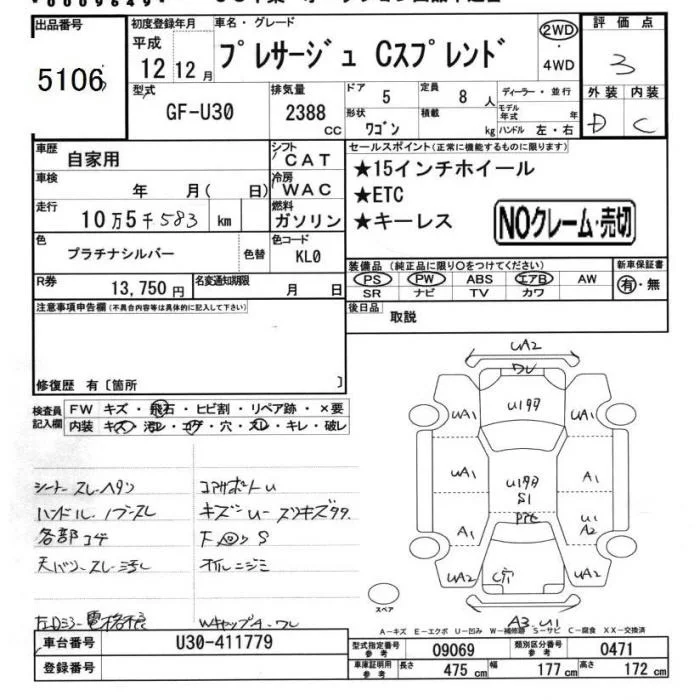 出品番号
5106
初度登録年月
平成
12 12 月
車名・グレード
プレサージュ Cスプレンド
2WD
・
4WD
評価点
3
外装 内装
D C
型式
GF-U30
排気量
2388
CC
ドア
5
定員
8 人
ディーラー・並行
形状
ワゴン
積載
kg
モデル
年式 年
ハンドル 左・右
車歴
自家用
シフト
CAT
車検
年 月( 日)
冷房
WAC
走行
10万5千583 km
燃料
ガソリン
色
プラチナシルバー
色替
色コード
KL0
R券
13,750 円
名変通知期限
月 日
セールスポイント(正常に機能するものに限ります)
★15インチホイール
★ETC
★キーレス
NOクレーム・売切
装備品 (純正品に限り○をつけてください)
PS PW ABS エアB AW
SR ナビ TV カワ
新車保証書
有・無
後日品
取説
注意事項申告欄(不具合内容等は具体的に記入して下さい)
修復歴 有〔箇所 〕
検査員
記入欄
FW キズ・飛石・ヒビ割・リペア跡・×要
内装 キズ・汚レ・コゲ・穴・スレ・キレ・破レ
シート スレ ヘタリ
ハンドル ノブ スレ
各部コゲ
コアサポートU
キズ U
オイルニジミ
左Dミラー電格不良
Wキャップ A
UA2
UA1 UA1
UA1 A1
S1
A1 U1
A2
UA2 C穴 UA2
A3.U1
スペア
A－キズ E－エクボ U－凹み W－補修跡 S－サビ C－腐食 XX－交換済
車台番号
U30-411779
登録番号
型式指定番号
参考
09069
類別区分番号
参考
0471
車庫証明用
参考
長さ 475 cm 幅 177 cm 高さ 172 cm